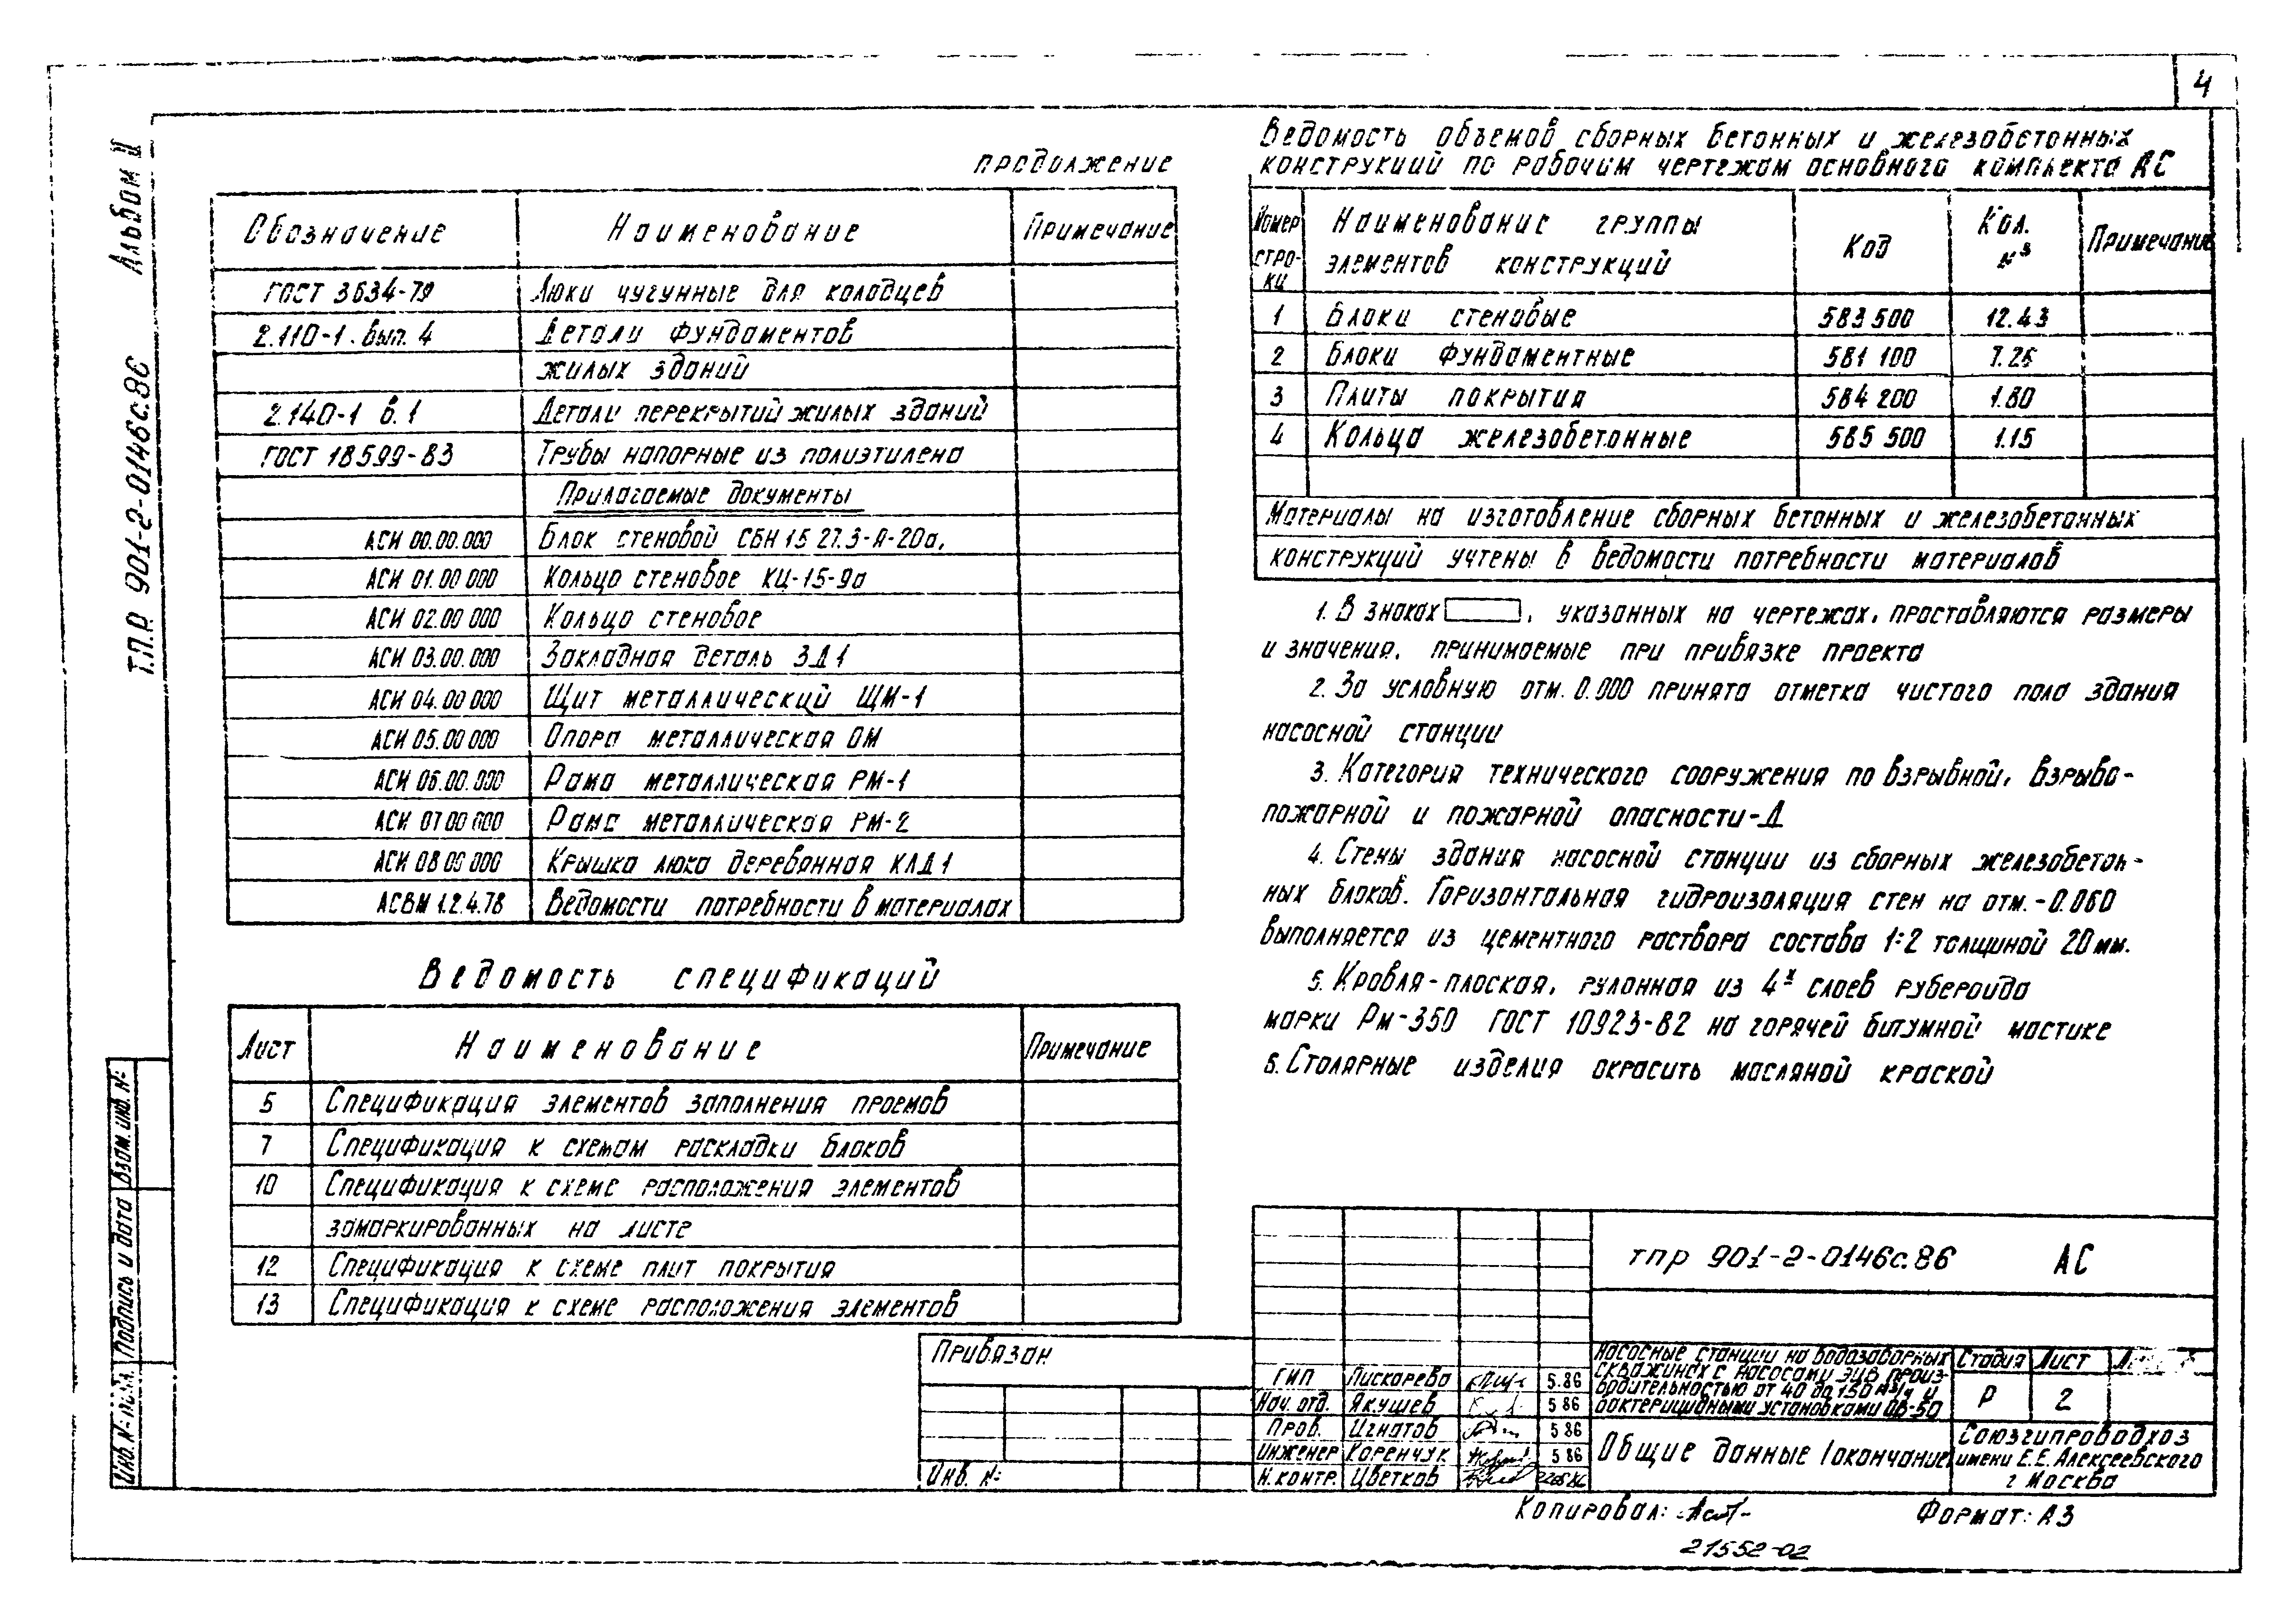 4
Альбом II
Т.П.Р 901-2-0146с.86
продолжение
Обозначение Наименование Примечание
ГОСТ 3634-79 Люки чугунные для колодцев
2.110-1. вып. 4 Детали фундаментов
жилых зданий
2.140-1 в.1 Детали перекрытий жилых зданий
ГОСТ 18599-83 Трубы напорные из полиэтилена
Прилагаемые документы
АСИ 00.00.000 Блок стеновой СБН 15 27.3-Я-20а,
АСИ 01.00 000 Кольцо стеновое КЦ-15-9а
АСИ 02.00 000 Кольцо стеновое
АСИ 03.00.000 Закладная деталь ЗД1
АСИ 04.00 000 Щит металлический ЩМ-1
АСИ 05.00 000 Опора металлическая ОМ
АСИ 06.00.000 Рама металлическая РМ-1
АСИ 07 00 000 Рама металлическая РМ-2
АСИ 08 00 000 Крышка люка деревянная КЛД1
АСВМ 1.2.4.78 Ведомости потребности в материалах
Ведомость спецификаций
Лист Наименование Примечание
5 Спецификация элементов заполнения проемов
7 Спецификация к схемам раскладки блоков
10 Спецификация к схеме расположения элементов
замаркированных на листе
12 Спецификация к схеме плит покрытия
13 Спецификация к схеме расположения элементов
Ведомость объемов сборных бетонных и железобетонных
конструкций по рабочим чертежам основного комплекта АС
Номер строки Наименование группы элементов конструкций Код Кол. м³ Примечание
1 Блоки стеновые 583 500 12.43
2 Блоки фундаментные 581 100 7.26
3 Плиты покрытия 584 200 1.80
4 Кольца железобетонные 585 500 1.15
Материалы на изготовление сборных бетонных и железобетонных
конструкций учтены в ведомости потребности материалов
1. В знаках , указанных на чертежах, проставляются размеры
и значения, принимаемые при привязке проекта
2. За условную отм. 0.000 принята отметка чистого пола здания
насосной станции
3. Категория технического сооружения по взрывной, взрыво-
пожарной и пожарной опасности-Д
4. Стены здания насосной станции из сборных железобетон-
ных блоков. Горизонтальная гидроизоляция стен на отм.-0.060
выполняется из цементного раствора состава 1:2 толщиной 20 мм.
5. Кровля-плоская, рулонная из 4х слоев рубероида
марки Рм-350 ГОСТ 10923-82 на горячей битумной мастике
6. Столярные изделия окрасить масляной краской
Взам. инв. №
Подпись и дата
Инв. № подл.
Привязан
Инв. №
тпр 901-2-0146с.86 АС
ГИП Пискарева 5.86
Нач. отд. Якушев 5 86
Пров. Игнатов 5 86
Инженер Коренчук 5 86
Н.контр. Цветков
Насосные станции на водозаборных
скважинах с насосами ЭЦВ произ-
водительностью от 40 до 150 м³/ч и
бактерицидными установками ОВ-50
Стадия Лист
Р 2
Общие данные (окончание)
Союзгипроводхоз
имени Е.Е.Алексеевского
г Москва
Копировал:
Формат: А3
21552-02